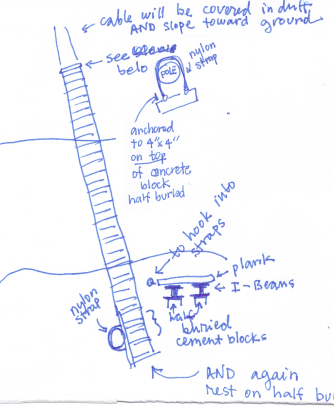 cable will be covered in duff
AND slope toward ground
see
belo
nylon
strap
pole
anchored
to 4"x4"
on top
of concrete
block
half buried
to hook into
straps
plank
I-Beans
nylon
strap
half
buried
cement blocks
AND again
rest on half bu